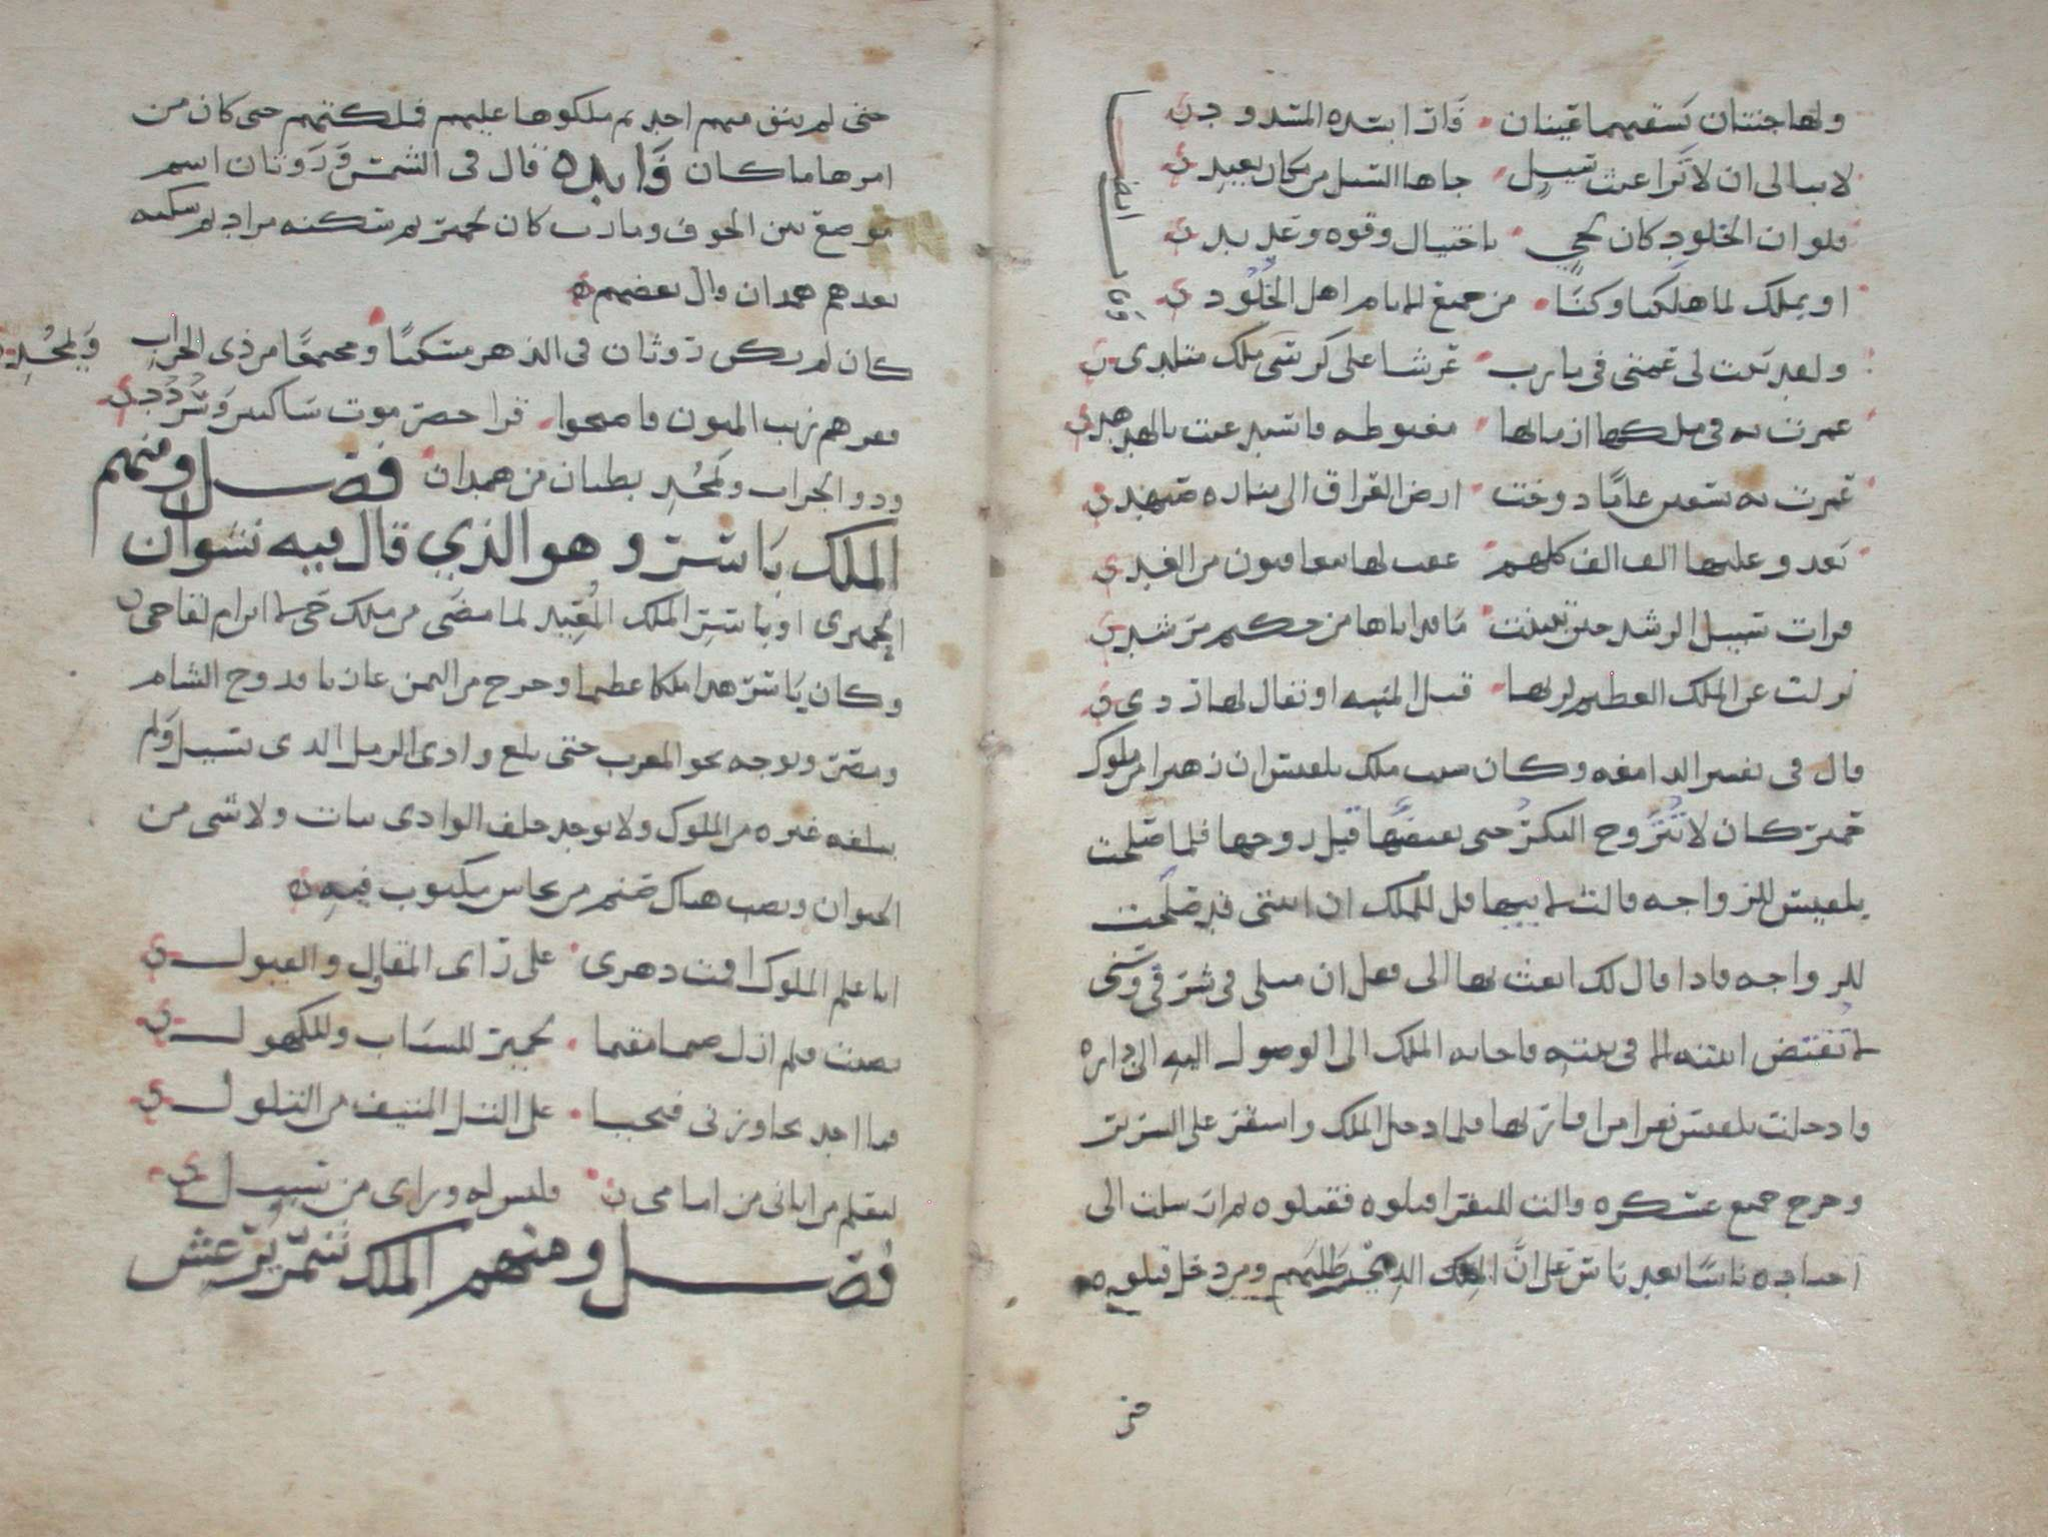 ولها جنتان تسقيهما عينان فاذا ابتده المسدود
لا يبالى ان لا تراعث سيل جاها السيل من مكان بعيد
فلو ان الخلود كان لحي باحتيال وقوه وعديد
او بملك لما هلكنا وكنا من جميع الانام اهل الخلود
ولقد بنت لى عمتى فى مارب عرشا على كرسى ملك متلد
عمرت به فى ملكها ازمانها مغبوطه فاستدعت بالهدهد
عمرت به سبعين عاما دوخت ارض العراق الى مفازه صيهد
يغدو عليها الف الف كلهم عقب لها متعاقبون من الغد
فرات سبيل الرشد حين تبينت ما قد اتاها من حكيم مرشد
نزلت عن الملك العظيم لربها قبل المنيه او يقال لها ردى
قال فى تفسير الدامغه وكان سبب ملك بلقيس ان زهيرا من ملوك
حمير كان لا تتزوج البكر حتى يفتضها قبل زوجها فلما صلحت
بلقيس للزواجه قالت لابيها قل للملك ان ابنتى قد صلحت
للزواجه فاذا قال لك ابعث بها الى فقل ان مثلى فى شرفى وسنى
لا تفتض ابنته الا فى بيته فاجابه الملك الى الوصول اليه الى داره
وادخلت بلقيس نفرا من اقاربها فلما دخل الملك واستقر على السرير
وخرج جميع عسكره قالت للنفر اقتلوه فقتلوه ثم ارسلت الى
اصحابه ناسا بعد ناس على ان الملك الذى طلبهم ومن دخل قتلوه
حتى لم يبق منهم احد ثم ملكوها عليهم فملكتهم حتى كان من
امرها ما كان فايده قال فى الشمس وروثان اسم
موضع بين الجوف ومارب كان لحمير ثم سكنه مراد ثم سكنه
بعدهم همدان قال بعضهم
كان لم يكن روثان فى الدهر مسكنا ومجتمعا من ذى الجراب ويمجد
ففرهم نهب المنون فاصبحوا قرا حضرموت ساكنين وسردد
وذو الجراب ويمجد بطنان من همدان فصل ومنهم
الملك ياسر وهو الذي قال فيه نشوان
الحميرى او ياسر الملك المعيد لما مضى من ملك حى لا ابرام لقاحى
وكان ياسر هذا ملكا عظيما وخرج من اليمن غازيا فدوح الشام
ومصر وتوجه نحو المغرب حتى بلغ وادى الرمل الذى يسيل ولم
يبلغه غيره من الملوك ولا يوجد خلف الوادى نبات ولا شى من
الحيوان ونصب هناك صنم من نحاس مكتوب فيه
انا علم الملوك اقمت دهرى على راى المقاول والقيول
نصبت فلم ازل صنما مقيما لحمير للشباب وللكهول
فما احد يجاوزنى فيحيا على التل المنيف من التلول
ليعلم من اتانى من امامى فليس له ورائ من سبيل
فصل ومنهم الملك شمر يرعش